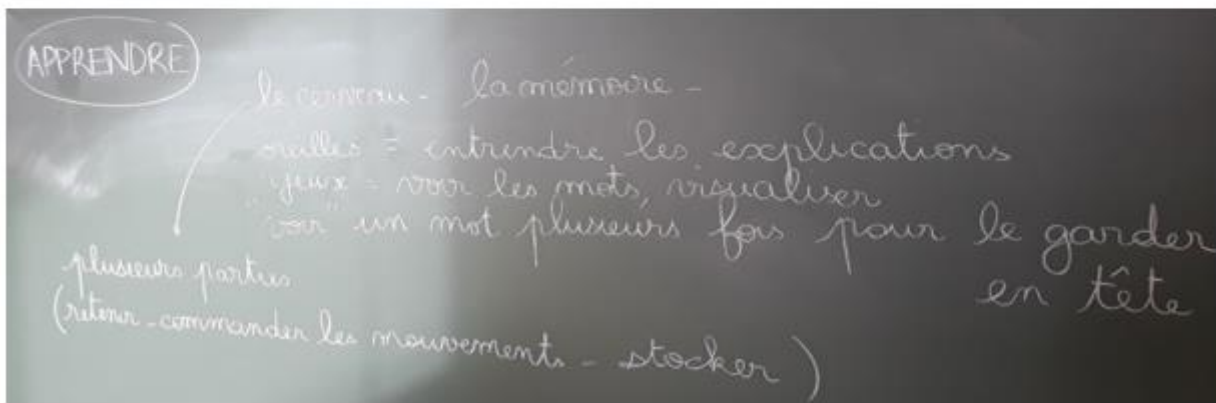 APPRENDRE
le cerveau - la mémoire -
oreilles = entrendre les explications
yeux = voir les mots, visualiser
"voir" un mot plusieurs fois pour le garder
en tête
plusieurs parties
(retenir - commander les mouvements - stocker)